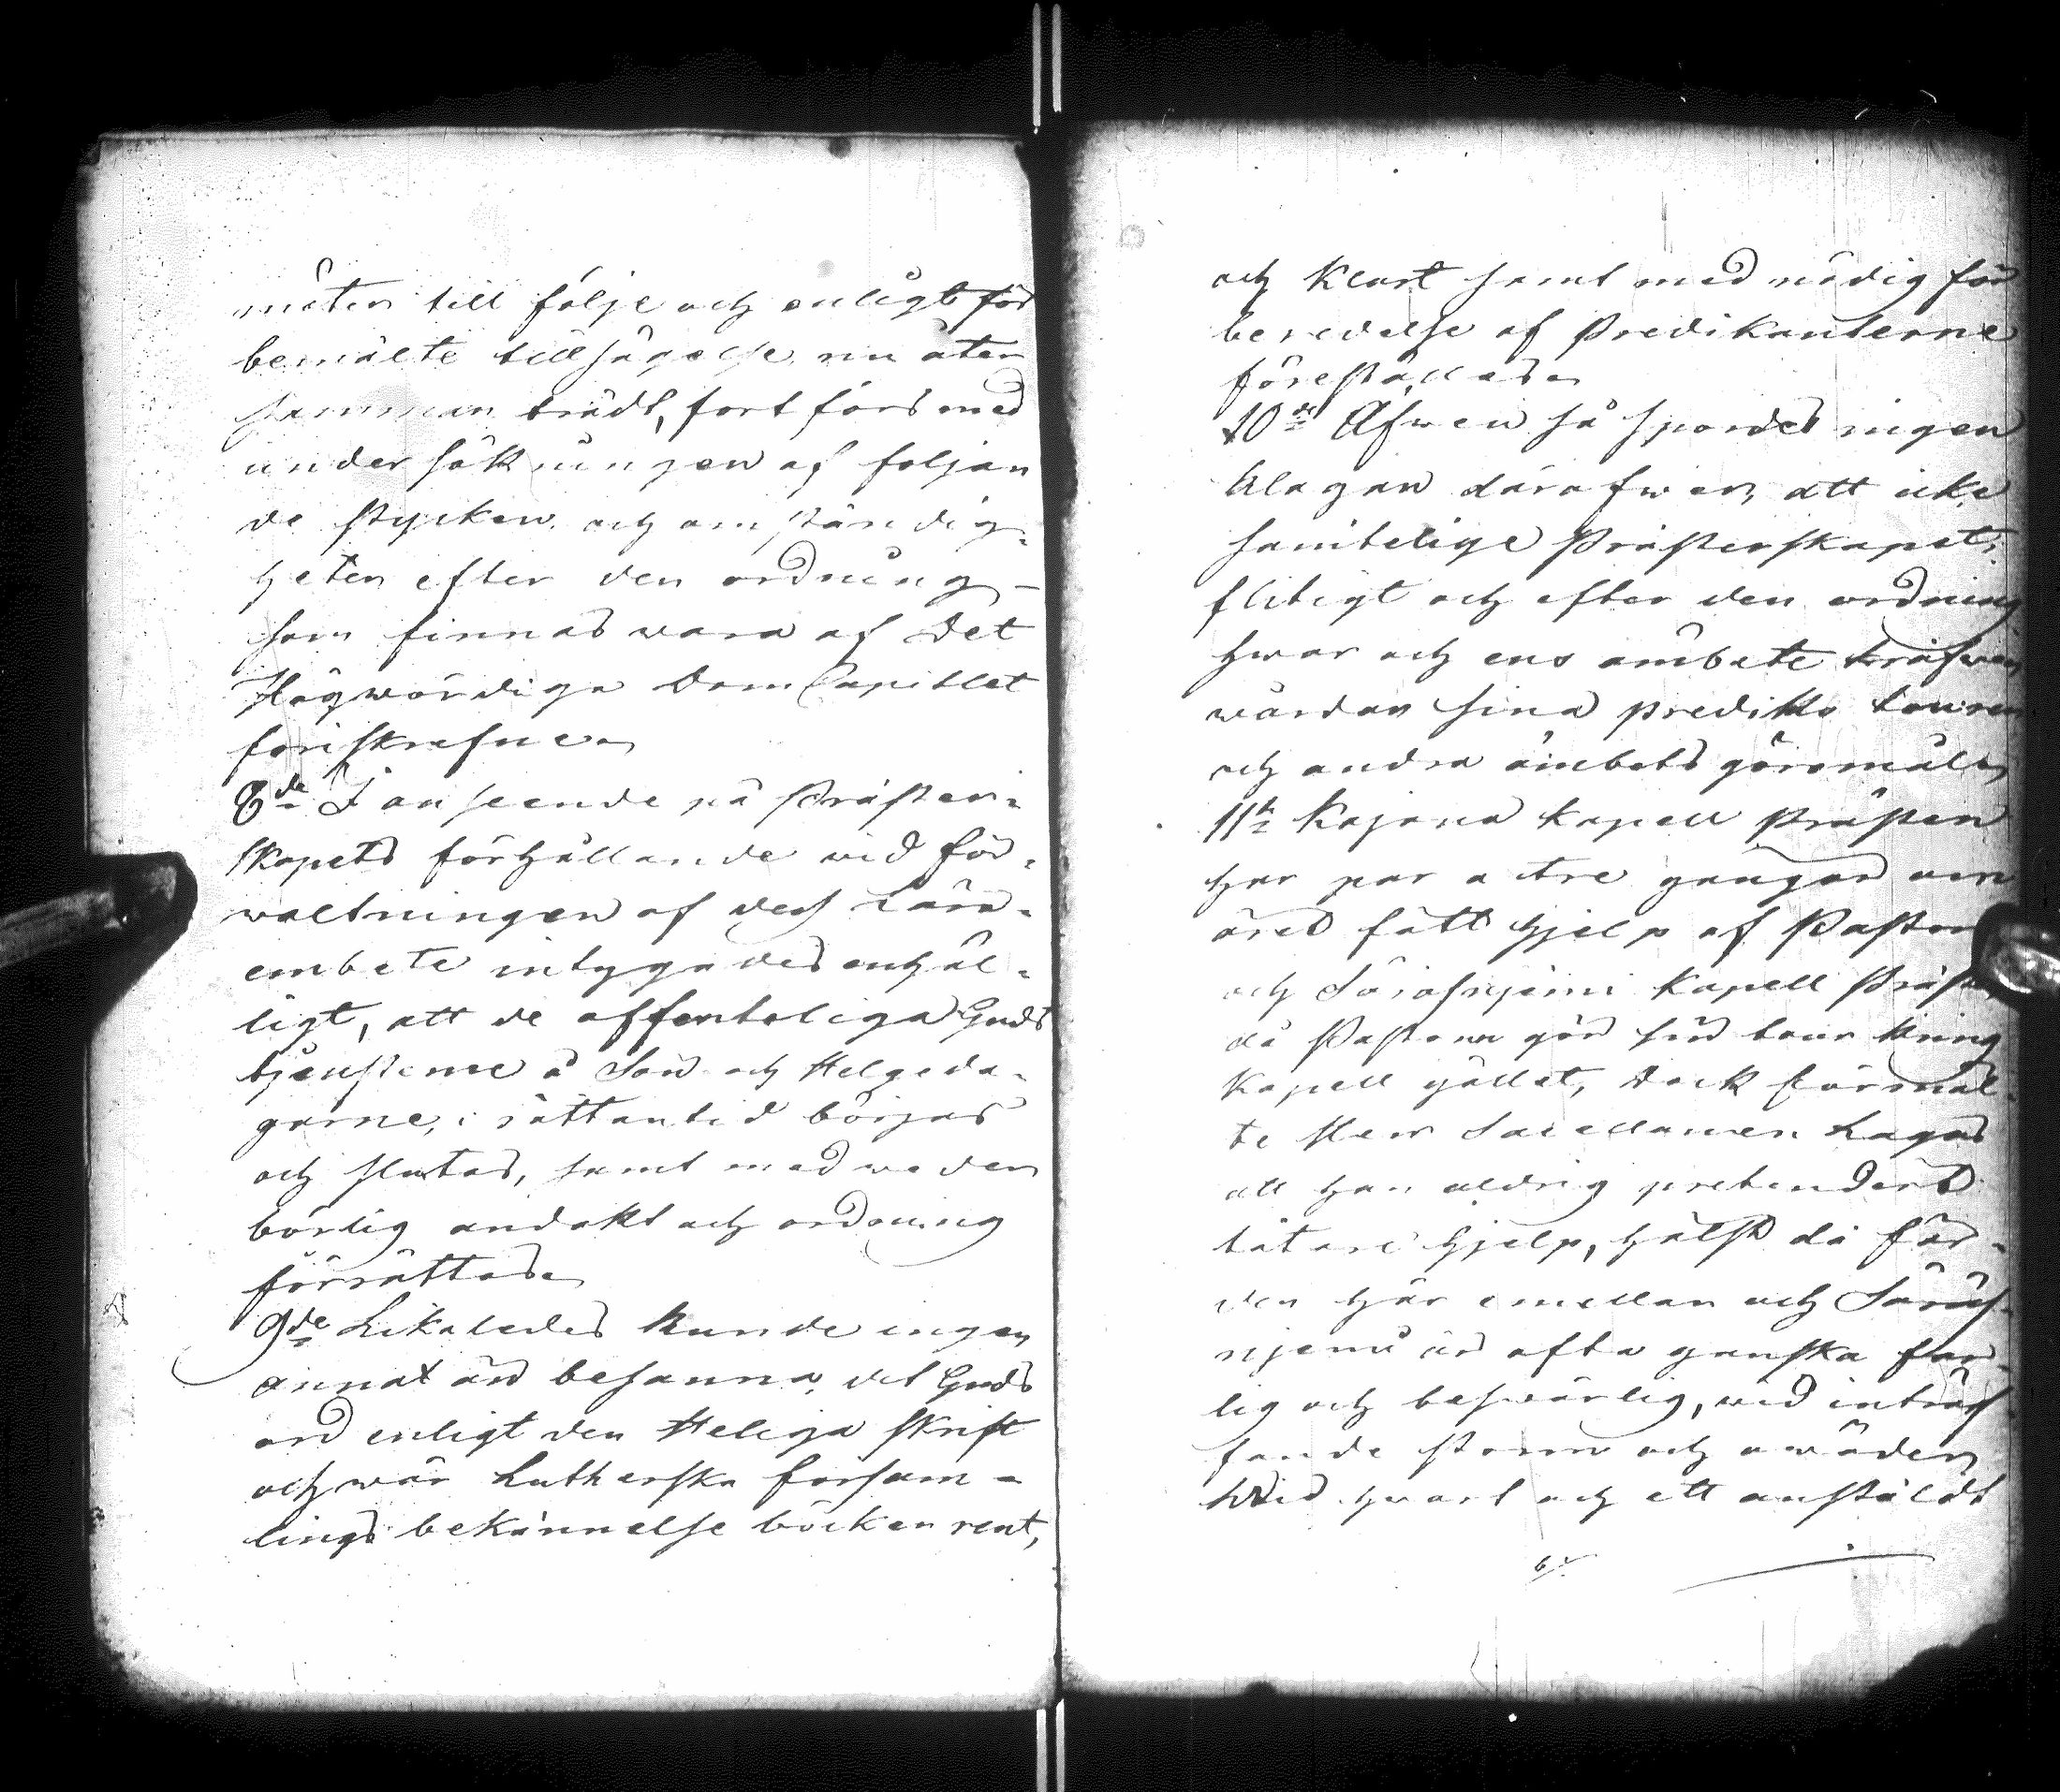 möter till följe och enligt för
bemälte tillsägelse nu åter
samman trädt, fort förd med
undersökningen af följan
de stycken och omständig-
heter efter den ordning -
som finnas wara af Det
Högwördiga DomCapitlet
föriskrefne.
8de I anseende på Präster-
skapets förhållande wid för-
waltningen af dess Lära-
embete intygades enhäl-
ligt, att de offenteliga Guds
tjensterne å Sön och Helgeda-
garne, i rättan tid börjas
och slutas, samt med
börlig andakt och ordning
förrättas.
9de Likaledes kunde ingen
annat än besanna, det Guds
ord enligt den Heliga skrift
och wår Lutherska försam-
lings bekännelse böcker rent,
och klart samt med nödig för
beredelse af Predikanterne
föreställes.
10de Äfwen så spordes ingen
klagan däröfwer, att icke
samtelige Prästerskapet
flitigt och efter den ordning
hwar och ens ämbete kräfwer
wårdar sina prediko tourer
och andra ämbets göromåler
11te Kajana kapell Prästen
har par a tre gångor om
året fått hjelp af Pastor
och Säräsniemi Kapell Präst
då Pastorn gör sin tour kring
Kapell gället, dock förmäl-
te Herr Sacellanen Lagus
att han aldrig pretenderat
tätare hjelp, hälst då får-
den här emellan och Säräs-
njemi är ofta ganska far-
lig och beswärlig, wid inträf-
fande storm och owäder,
Wid hwart och ett anstäldt